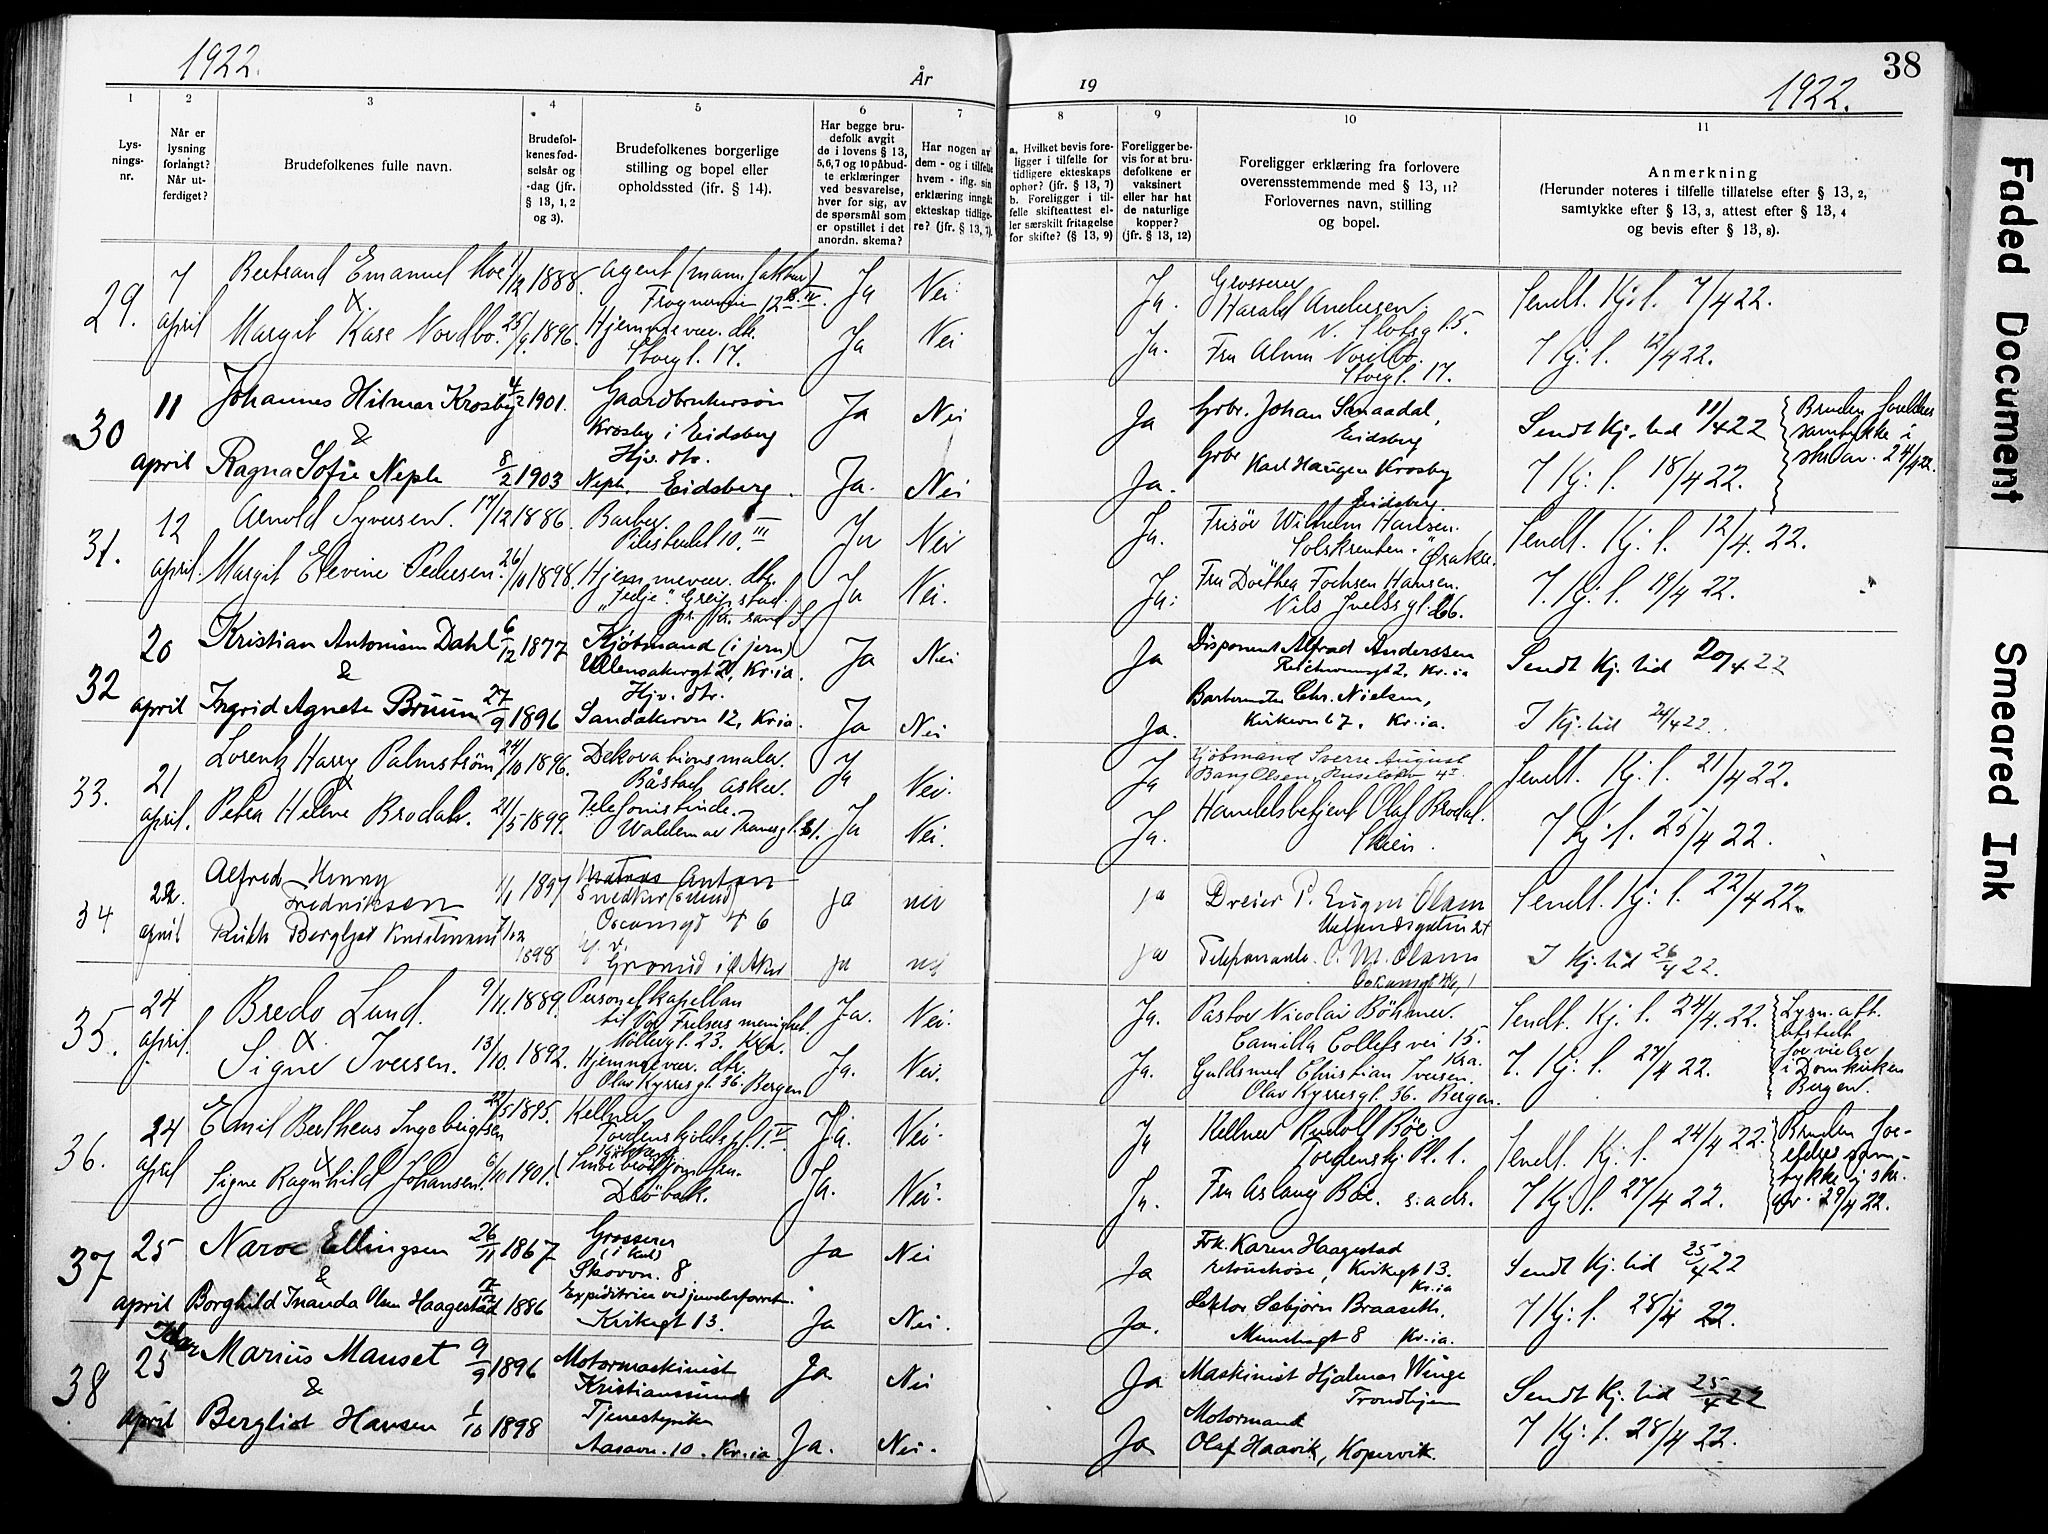 1922.
År
19
1922.
38
1
2
3
4
5
6
7
8
9
10
11
Lys-
nings-
nr.
Når er
lysning
forlangt?
Når ut-
ferdiget?
Brudefolkenes fulle navn.
Brudefol-
kenes fød-
selsår og
-dag (jfr.
§ 13, 1, 2
og 3).
Brudefolkenes borgerlige
stilling og bopel eller
opholdssted (jfr. § 14).
Har begge bru-
defolk avgit
de i lovens § 13,
5,6,7 og 10 påbud-
te erklæringer
ved besvarelse,
hver for sig, av
de spørsmål som
er opstillet i det
anordn. skema?
Har nogen av
dem - og i tilfelle
hvem - iflg. sin
erklæring inngått
ekteskap tidlige-
re? (jfr. § 13, 7).
a. Hvilket bevis fore-
ligger i tilfelle for
tidligere ekteskaps
ophør? (jfr. § 13, 7)
b. Foreligger i til-
felle skifteattest el-
ler særskilt fritagelse
for skifte? (§ 13, 9)
Foreligger be-
vis for at bru-
defolkene er
vaksinert
eller har hat
de naturlige
kopper?
(jfr. § 13, 12)
Foreligger erklæring fra forlovere
overensstemmende med § 13, 11?
Forlovernes navn, stilling
og bopel.
Anmerkning
(Herunder noteres i tilfelle tillatelse efter § 13, 2,
samtykke efter § 13, 3, attest efter § 13, 4
og bevis efter § 13, 8).
29. 7 april
Bertrand Emanuel Moe 1/12 1888. Agent (manufaktur) Ja Nei.
Frognerveien 12 B. IV.
&
Margit Kase Nordbo. 25/9. 1896. Hjemmevær. dtr. Ja Nei
Storgt. 17.
Ja. Grosserer
Harald Andersen. Sendt. Kj. t. 7/4 22.
N. Slotsgt. 5.
Ja. Fru Alma Nordbo. I Kj. t. 12/4 22.
Storgt. 17.
30 11 april
Johannes Hilmar Krosby 4/2 1901. Gaardbrukersøn Ja Nei
Krosby i Eidsberg
&
Hjv. dtr.
Ragna Sofie Neple 8/2 1903 Neple, Eidsberg. Ja. Nei
Ja Grbr. Johan Smaadal, Sendt Kj. tid 11/4 22
Eidsberg
Ja. Grbr Karl Haugen Krosby I Kj. t. 18/4 22.
Eidsberg.
Brudens foreldres
samtykke i
skr. av. 24/4 22.
31. 12 april.
Arnold Syversen. 17/12 1886. Barber. Ja Nei
Pilestredet 10. III
Margit Elevine Pedersen. 26/10 1898. Hjemmevær. dtr. Ja Nei.
"Fedje" Greipstad.
pr. Kr. sand S.
Ja. Frisør Wilhelm Hansen. Sendt. Kj. t. 12/4. 22.
"Solskrenten." Øraker.
Ja. Fru Dorthea Fochsen Hansen. I. Kj. t. 19/4 22.
Nils Juelsgt. 66.
32 20 april
Kristian Antonius Dahl 6/12 1877 Kjøbmand (i jern) Ja Nei
Ullensakergt 21, Kr.ia.
&
Hjv. dtr.
Ingrid Agnete Bruun 27/9 1896 Sandakervn 12, Kr.ia. Ja Nei
Ja Disponent Alfred Anderssen Sendt Kj. tid 20/4 22
Kr.ia
Ja. Chr. Nielsen, I Kj. tid 24/4 22.
Kirkevn 67. Kr.ia.
33. 21 april.
Lorentz Harry Palmstrøm 24/10 1896. Dekorationsmaler. Ja Nei.
Båstad, Asker.
&
Petra Helene Brodahl. 21/5 1899. Telefonistinde. Ja Nei.
Waldemar Tranesgt. 61.
Ja Kjøbmand Sverre August Sendt. Kj. t. 21/4 22.
Bang Olsen, Ruseløkv 4 I
Ja. Handelsbetjent Olaf Brodal. I Kj. t. 25/4 22.
Skien.
34 22. april
Alfred Henry 1/1 1897 Snedker (svend) ja nei
Fredriksen
Oscarsgt 46
Ruth Bergljot 1898 ja nei
Grorud i Ø. Aker
ja Dreier P. Eugen Olsen Sendt. Kj. t. 22/4 22.
ja C. M. Olsens I Kj. tid 26/4 22.
35. 24 april.
Bredo Lund. 9/11. 1889. Personelkapellan Ja. Nei.
til Vor Frelsers menighet.
Møllergt. 23. Kra.
&
Signe Iversen. 13/10. 1892. Hjemmevær. dtr. Ja. Nei.
Olav Kyrresgt. 36. Bergen
Ja. Pastor Nicolai Böhmer. Sendt. Kj. t. 24/4. 22.
Camilla Colletts vei 15.
Kra.
Ja. Guldsmed Christian Iversen. I. Kj. t. 27/4 22.
Olav Kyrresgt. 36. Bergen.
Lysn. att.
utstedt
for vielse
i Domkirken
Bergen.
36. 24 april
Emil Bertheus Ingebrigtsen 22/5 1895. Kellner Ja. Nei.
Tordenskjoldspl. 1. V
&
Signe Ragnhild Johansen. 6/10 1901. Ja. Nei.
Drøbak.
Ja Kellner Rudolf Bøe. Sendt. Kj. t. 24/4 22.
Tordenskj. Pl. 1.
Ja. Fru Aslaug Bøe. s. ads. I Kj. t. 27/4 22.
Brudens for-
eldres sam-
tykke i skr.
av. 29/4 22.
37 25 april
Narve Ellingsen 26/11 1867 Grosserer Ja Nei
(i kul)
Skovvn. 8
&
Borghild Inanda Olsen Haagestad 7/12 1886 Expeditrice ved juvelerforretn. Ja Nei.
Kirkegt 13.
Ja Frk. Karen Haagestad Sendt Kj. tid 25/4 22
retouchøse, Kirkegt 13.
Kr.ia
Ja. Lektor Sæbjørn Braaseth, I Kj. t. 28/4 22.
Munchsgt 8 Kr.ia.
38 25 april
Marius Mauset 9/9 1896 Motormaskinist Ja Nei
Kristianssund
&
Tjenestepike
Bergliot Hansen 1/10 1898 Aasavn. 10. Kr.ia Ja. Nei.
Ja Maskinist Hjalmar Winge Sendt Kj. tid 25/4 22
Trondhjem
Ja Motormand I Kj. t. 28/4 22.
Olaf Haavik, Kopervik.
Faded Document
Smeared Ink